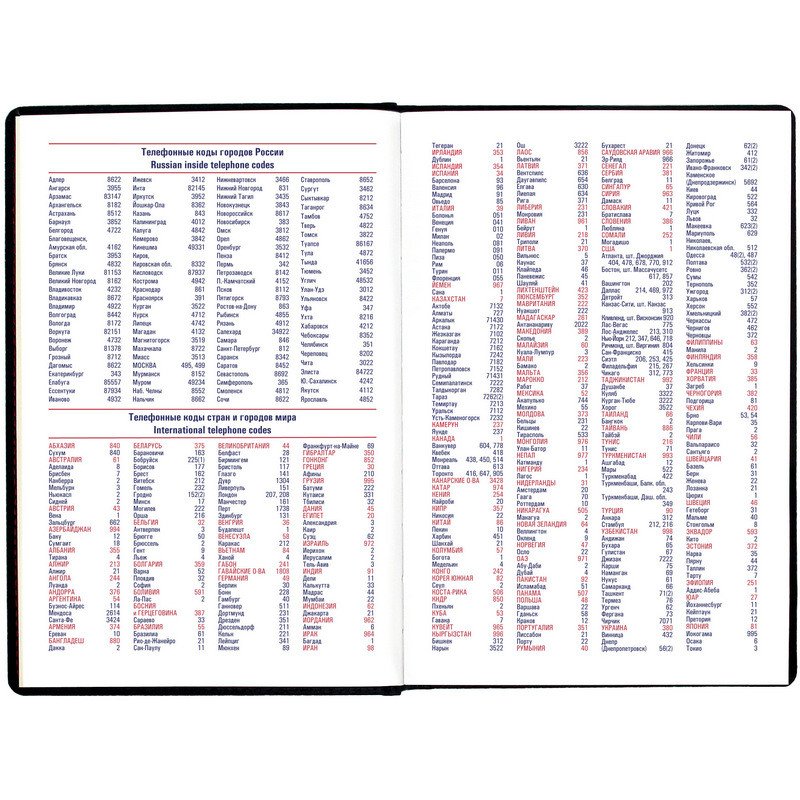 Телефонные коды городов России
Russian inside telephone codes
Адлер 8622
Ангарск 3955
Арзамас 83147
Архангельск 8182
Астрахань 8512
Барнаул 3852
Белгород 4722
Благовещенск,
Амурская обл. 4162
Братск 3953
Брянск 4832
Великие Луки 81153
Великий Новгород 8162
Владивосток 4232
Владикавказ 8672
Владимир 4922
Волгоград 8442
Вологда 8172
Воркута 82151
Воронеж 4732
Выборг 81378
Грозный 8712
Дагомыс 8622
Екатеринбург 343
Елабуга 85557
Ессентуки 87934
Иваново 4932
Ижевск 3412
Инта 82145
Иркутск 3952
Йошкар Ола 8362
Казань 843
Калининград 4012
Калуга 4842
Кемерово 3842
Кинешма 49331
Киров,
Кировская обл. 8332
Кисловодск 87937
Кострома 4942
Краснодар 861
Красноярск 391
Курган 3522
Курск 4712
Липецк 4742
Магадан 4132
Магнитогорск 3519
Махачкала 8722
Миасс 3513
МОСКВА 495, 499
Мурманск 8152
Муром 49234
Наб. Челны 8552
Нальчик 8662
Нижневартовск 3466
Нижний Новгород 831
Нижний Тагил 3435
Новокузнецк 3843
Новороссийск 8617
Новосибирск 383
Омск 3812
Орел 4862
Оренбург 3532
Пенза 8412
Пермь 342
Петрозаводск 8142
П.-Камчатский 4152
Псков 8112
Пятигорск 8793
Ростов-на-Дону 863
Рыбинск 4855
Рязань 4912
Салехард 34922
Самара 846
Санкт-Петербург 812
Саранск 8342
Саратов 8452
Севастополь 8692
Симферополь 365
Смоленск 4812
Сочи 8622
Ставрополь 8652
Сургут 3462
Сыктывкар 8212
Таганрог 8634
Тамбов 4752
Тверь 4822
Томск 3822
Туапсе 86167
Тула 4872
Тында 41656
Тюмень 3452
Углич 48532
Улан Удэ 3012
Ульяновск 8422
Уфа 347
Ухта 8216
Хабаровск 4212
Чебоксары 8352
Челябинск 351
Череповец 8202
Чита 3022
Элиста 84722
Ю.-Сахалинск 4242
Якутск 4112
Ярославль 4852
Телефонные коды стран и городов мира
International telephone codes
АБХАЗИЯ 840
Сухум 840
АВСТРАЛИЯ 61
Аделаида 8
Брисбен 7
Канберра 2
Мельбурн 3
Ньюкасл 2
Сидней 2
АВСТРИЯ 43
Вена 1
Зальцбург 662
АЗЕРБАЙДЖАН 994
Баку 12
Сумгаит 18
АЛБАНИЯ 355
Тирана 4
АЛЖИР 213
Алжир 21
АНГОЛА 244
Луанда 2
АНДОРРА 376
АРГЕНТИНА 54
Буэнос-Айрес 114
Мендоса 2614
Санта-Фе 3424
АРМЕНИЯ 374
Ереван 10
БАНГЛАДЕШ 880
Дакка 2
БЕЛАРУСЬ 375
Барановичи 163
Бобруйск 225(1)
Борисов 177
Брест 162
Витебск 212
Гомель 232
Гродно 152(2)
Минск 17
Могилев 222
Орша 216
БЕЛЬГИЯ 32
Антверпен 3
Брюгге 50
Брюссель 2
Гент 9
Льеж 4
БОЛГАРИЯ 359
Варна 52
Пловдив 32
София 2
БОЛИВИЯ 591
Ла-Пас 2
БОСНИЯ
и ГЕРЦЕГОВИНА 387
Сараево 33
БРАЗИЛИЯ 55
Бразилиа 61
Рио-де-Жанейро 21
Сан-Паулу 11
ВЕЛИКОБРИТАНИЯ 44
Белфаст 28
Бирмингем 121
Бристоль 117
Глазго 141
Дувр 1304
Ливерпуль 151
Лондон 207, 208
Манчестер 161
Перт 1738
Эдинбург 131
ВЕНГРИЯ 36
Будапешт 1
ВЕНЕСУЭЛА 58
Каракас 212
ВЬЕТНАМ 84
Ханой 4
ГАБОН 241
ГАВАЙСКИЕ О-ВА 1808
ГЕРМАНИЯ 49
Берлин 30
Бонн 228
Гамбург 40
Ганновер 511
Дортмунд 231
Дрезден 351
Дюссельдорф 211
Кельн 221
Лейпциг 341
Мюнхен 89
Франкфурт-на-Майне 69
ГИБРАЛТАР 350
ГОНКОНГ 852
ГРЕЦИЯ 30
Афины 210
ГРУЗИЯ 995
Батуми 222
Кутаиси 331
Тбилиси 32
ДАНИЯ 45
ЕГИПЕТ 20
Александрия 3
Каир 2
Суэц 62
ИЗРАИЛЬ 972
Иерихон 2
Иерусалим 2
Тель-Авив 3
ИНДИЯ 91
Дели 11
Калькутта 33
Мадрас 44
Мумбаи 22
ИНДОНЕЗИЯ 62
Джакарта 21
ИОРДАНИЯ 962
Амман 6
ИРАК 964
Багдад 1
ИРАН 98
Тегеран 21
ИРЛАНДИЯ 353
Дублин 1
ИСЛАНДИЯ 354
ИСПАНИЯ 34
Барселона 93
Валенсия 96
Мадрид 91
Овьедо 85
ИТАЛИЯ 39
Болонья 051
Венеция 041
Генуя 010
Милан 02
Неаполь 081
Палермо 091
Пиза 050
Рим 06
Турин 011
Флоренция 055
ЙЕМЕН 967
Сана 1
КАЗАХСТАН 7
Актобе 7132
Алматы 727
Аркалык 71430
Астана 7172
Жезказган 7102
Караганда 7212
Кокшетау 7162
Кызылорда 7242
Павлодар 7182
Петропавловск 7152
Рудный 71431
Семипалатинск 7222
Талдыкорган 7282
Тараз 7262(2)
Темиртау 7213
Уральск 7112
Усть-Каменогорск 7232
КАМЕРУН 237
КАНАДА 1
Ванкувер 604, 778
Квебек 418
Монреаль 438, 450, 514
Оттава 613
Торонто 416, 647, 905
КАНАРСКИЕ О-ВА 3428
КАТАР 974
КЕНИЯ 254
Найроби 20
КИПР 357
Никосия 22
КИТАЙ 86
Пекин 10
Харбин 451
Шанхай 21
КОЛУМБИЯ 57
Богота 1
Медельин 4
КОНГО 242
КОРЕЯ ЮЖНАЯ 82
Сеул 2
КОСТА-РИКА 506
КНДР 850
Пхеньян 2
КУБА 53
Гавана 7
КУВЕЙТ 965
КЫРГЫЗСТАН 996
Бишкек 312
Нарын 3522
Ош 3222
ЛАОС 856
Вьентьян 21
ЛАТВИЯ 371
Вентспилс 636
Даугавпилс 654
Елгава 630
Лиепая 634
Рига 371
ЛИБЕРИЯ 231
Монровия 231
ЛИВАН 961
Бейрут 1
ЛИВИЯ 218
Триполи 21
ЛИТВА 370
Вильнюс 5
Каунас 37
Клайпеда 46
Паневежис 45
Шауляй 41
ЛИХТЕНШТЕЙН 423
ЛЮКСЕМБУРГ 352
МАВРИТАНИЯ 222
Нуакшот
МАДАГАСКАР 261
Антананариву 2022
МАКЕДОНИЯ 389
Скопье 2
МАЛАЙЗИЯ 60
Куала-Лумпур 3
МАЛИ 223
Бамако 2
МАЛЬТА 356
МАРОККО 212
Рабат 37
МЕКСИКА 52
Акапулько 744
Мехико 55
МОЛДОВА 373
Бельцы 231
Кишинев 22
Тирасполь 533
МОНГОЛИЯ 976
Улан Батор 11
НЕПАЛ 977
Катманду 1
НИГЕРИЯ 234
Лагос 1
НИДЕРЛАНДЫ 31
Амстердам 20
Гаага 70
Роттердам 10
НИКАРАГУА 505
Манагуа 2
НОВАЯ ЗЕЛАНДИЯ 64
Веллингтон 4
Окленд 9
НОРВЕГИЯ 47
Осло 22
ОАЭ 971
Абу-Даби 2
Дубай 4
ПАКИСТАН 92
Исламабад 51
ПАНАМА 507
ПОЛЬША 48
Варшава 22
Гданьск 58
Краков 12
ПОРТУГАЛИЯ 351
Лиссабон 21
Порту 22
РУМЫНИЯ 40
Бухарест 21
САУДОВСКАЯ АРАВИЯ 966
Эр-Рияд
СЕНЕГАЛ 221
СЕРБИЯ 381
Белград 11
СИНГАПУР 65
СИРИЯ 963
Дамаск 11
СЛОВАКИЯ 421
Братислава 7
СЛОВЕНИЯ 386
Любляна 1
СОМАЛИ 252
Могадишо 1
США 1
Атланта, шт. Джорджия
404, 478, 678, 770, 912
Бостон, шт. Массачусетс
617, 857
Вашингтон 202
Даллас 214, 469, 972
Детройт 313
Канзас-Сити, шт. Канзас
913
Лас-Вегас 702
Лос-Анджелес 213, 310
Нью-Йорк 212, 347, 646, 718
Ричмонд, шт. Виргиния 804
Сан-Франциско 415
Сиэтл 206, 253, 425
Филадельфия 215, 267
Чикаго 312, 773
ТАДЖИКИСТАН 992
Душанбе 37
Куляб 3322
Курган-Тюбе 3222
Хорог 3522
ТАИЛАНД 66
Бангкок 2
ТАЙВАНЬ 886
Тайбэй 2
ТУНИС 216
Тунис 71
ТУРКМЕНИСТАН 993
Ашгабад 12
Мары 522
Туркменабад 422
Туркменбаши, Балк. обл.
243
Туркменбаши, Даш. обл.
349
ТУРЦИЯ 90
Анкара 312
Стамбул 212, 216
УЗБЕКИСТАН 998
Андижан 74
Бухара 65
Гулистан 67
Джизак 72
Карши 75
Наманган 69
Нукус 61
Самарканд 66
Ташкент 71(2)
Термез 76
Ургенч 62
Фергана 73
Чирчик 7071
УКРАИНА 380
Винница 432
Днепр
(Днепропетровск) 56(2)
Донецк 62(2)
Житомир 412
Запорожье 61(2)
Ивано-Франковск 342(2)
Каменское
(Днепродзержинск) 5692
Киев 44
Кировоград 522
Кривой Рог 564
Луцк 332
Львов 32
Макеевка 623(2)
Мариуполь 629
Николаев,
Николаевская обл. 512
Одесса 48(2), 487
Полтава 532(2)
Ровно 362(2)
Сумы 542
Тернополь 352
Ужгород 312(2)
Харьков 57
Херсон 552
Хмельницкий 382(2)
Черкассы 472
Чернигов 462
Черновцы 372
ФИЛИППИНЫ 63
Манила 2
ФИНЛЯНДИЯ 358
Хельсинки 9
ФРАНЦИЯ 33
ХОРВАТИЯ 385
Загреб 1
ЧЕРНОГОРИЯ 382
Подгорица 81
ЧЕХИЯ 420
Брно 53, 54
Карловы-Вари 35
Прага 2
ЧИЛИ 56
Вальпараисо 32
Сантьяго 2
ШВЕЙЦАРИЯ 41
Базель 61
Берн 31
Женева 22
Лозанна 21
Цюрих 1
ШВЕЦИЯ 46
Гетеборг 31
Мальме 40
Стокгольм 8
ЭКВАДОР 593
Кито 2
ЭСТОНИЯ 372
Нарва 35
Пярну 44
Таллин 372
Тарту 7
ЭФИОПИЯ 251
Аддис-Абеба
ЮАР 27
Йоханнесбург 11
Кейптаун 21
Претория 12
ЯПОНИЯ 81
Иокогама 995
Осака 6
Токио 3